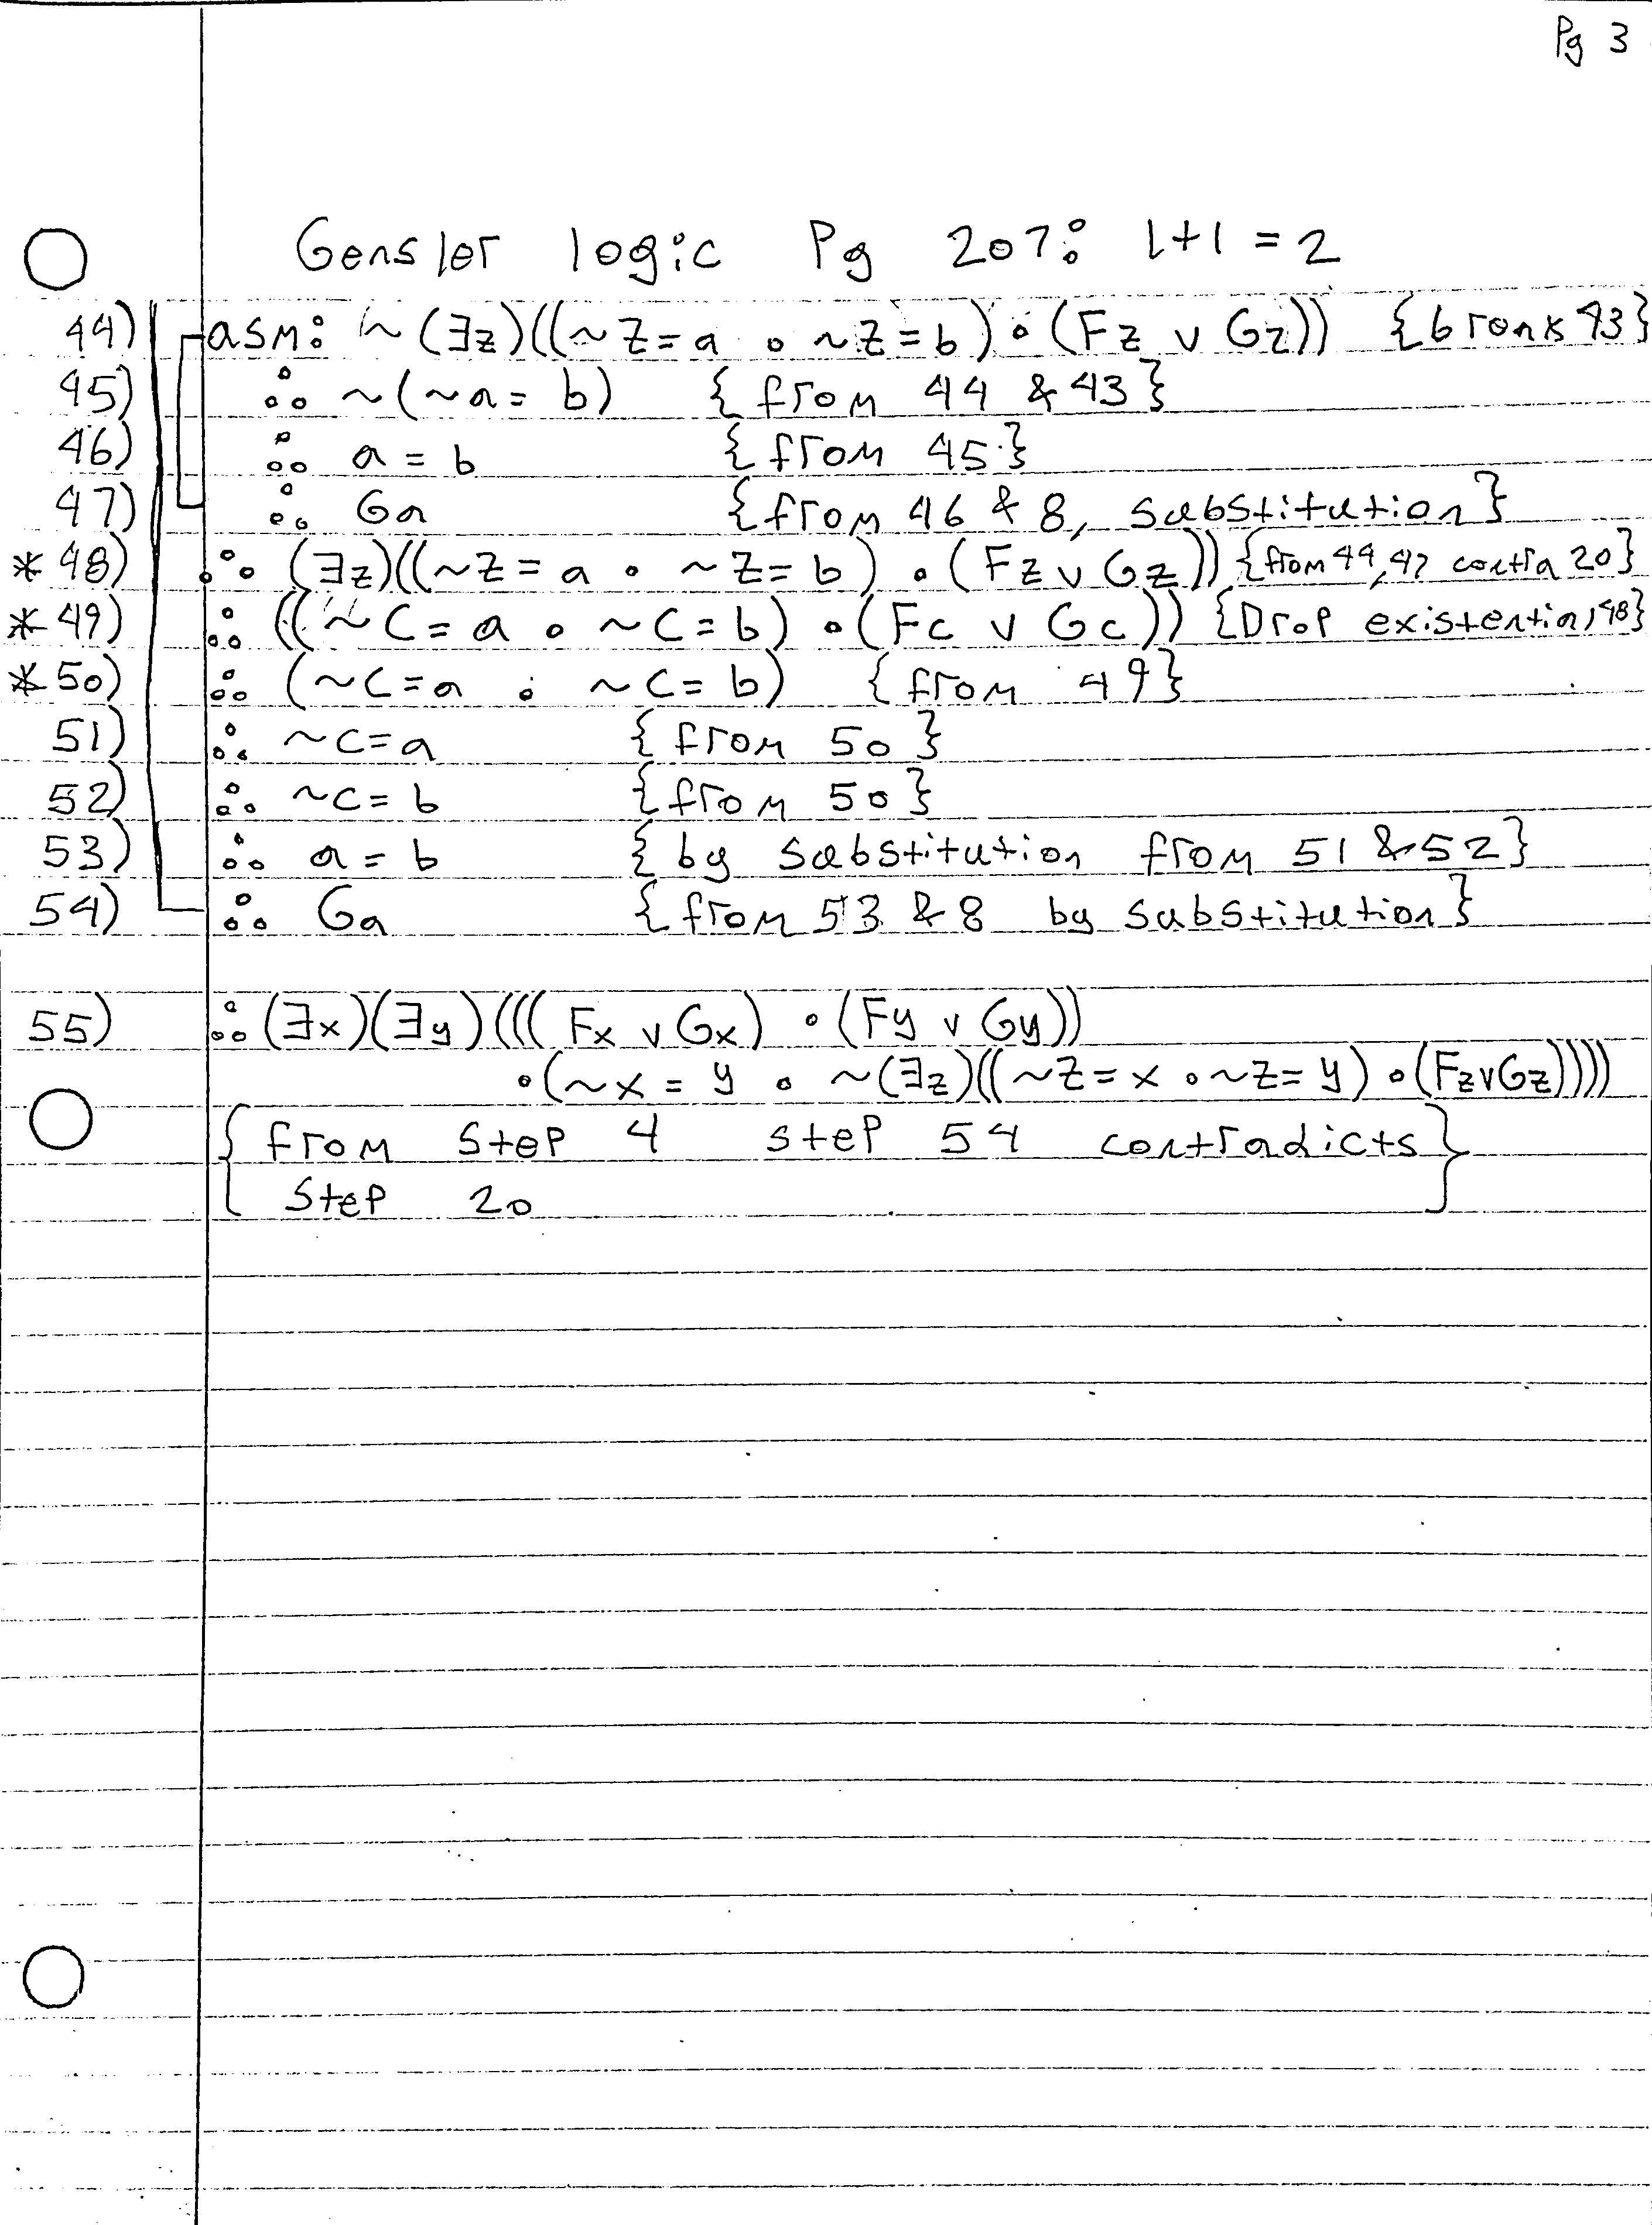 Pg 3
Gensler logic Pg 207: 1+1=2
44) asm: ~(∃z)((~z=a • ~z=b) • (Fz v Gz)) {break 43}
45) ∴ ~(~a=b) {from 44 & 43}
46) ∴ a=b {from 45}
47) ∴ Ga {from 46 & 8, substitution}
* 48) ∴ (∃z)((~z=a • ~z=b) • (Fz v Gz)) {from 44, 47 contra 20}
* 49) ∴ ((~c=a • ~c=b) • (Fc v Gc)) {Drop existential 48}
* 50) ∴ (~c=a • ~c=b) {from 49}
51) ∴ ~c=a {from 50}
52) ∴ ~c=b {from 50}
53) ∴ a=b {by substitution from 51 & 52}
54) ∴ Ga {from 53 & 8 by substitution}
55) ∴ (∃x)(∃y)(((Fx v Gx) • (Fy v Gy))
• (~x=y • ~(∃z)((~z=x • ~z=y) • (Fz v Gz))))
{from step 4 step 54 contradicts
step 20}